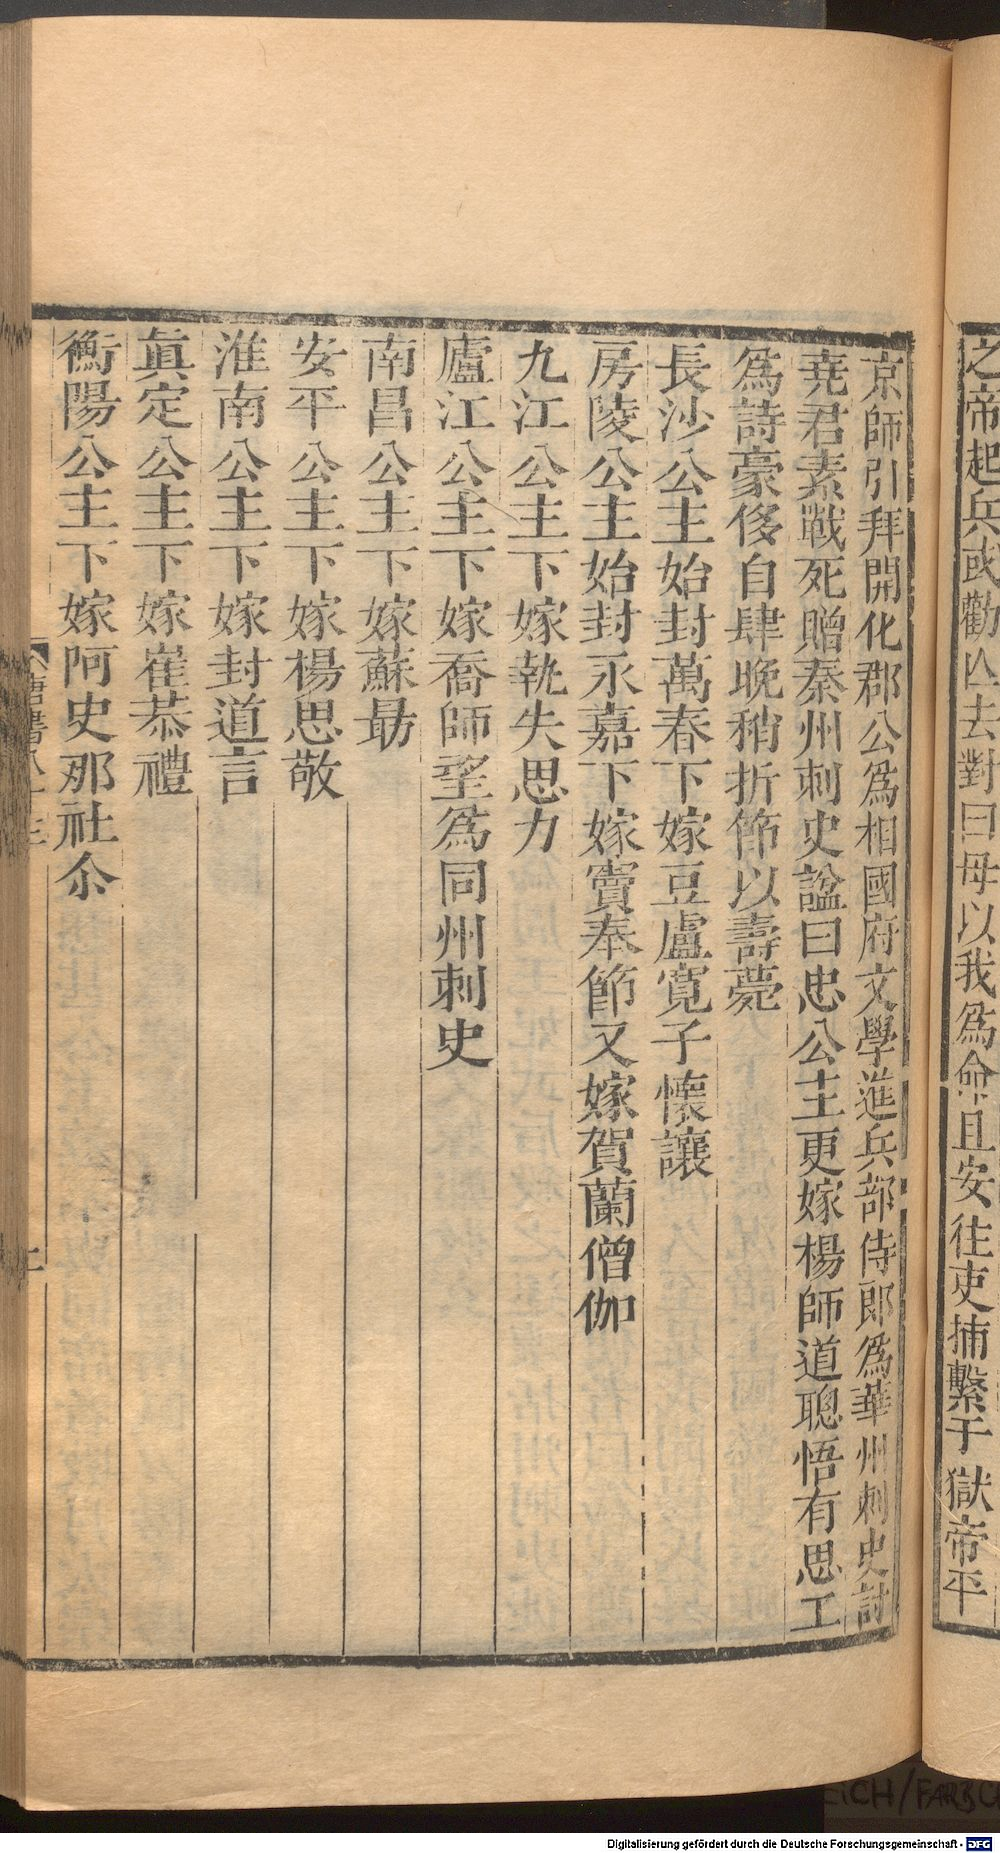 之帝起兵或勸亡去對曰母以我爲命且安往吏捕繫于獄帝平
京師引拜開化郡公爲相國府文學進兵部侍郎爲華州刺史討
堯君素戰死贈秦州刺史諡曰忠公主更嫁楊師道聰悟有思工
爲詩豪侈自肆晚稍折節以壽薨
長沙公主始封萬春下嫁豆盧寬子懷讓
房陵公主始封永嘉下嫁竇奉節又嫁賀蘭僧伽
九江公主下嫁執失思力
廬江公主下嫁喬師望爲同州刺史
南昌公主下嫁蘇勗
安平公主下嫁楊思敬
淮南公主下嫁封道言
眞定公主下嫁崔恭禮
衡陽公主下嫁阿史那社尒
唐書八十三
Digitalisierung gefördert durch die Deutsche Forschungsgemeinschaft - DFG